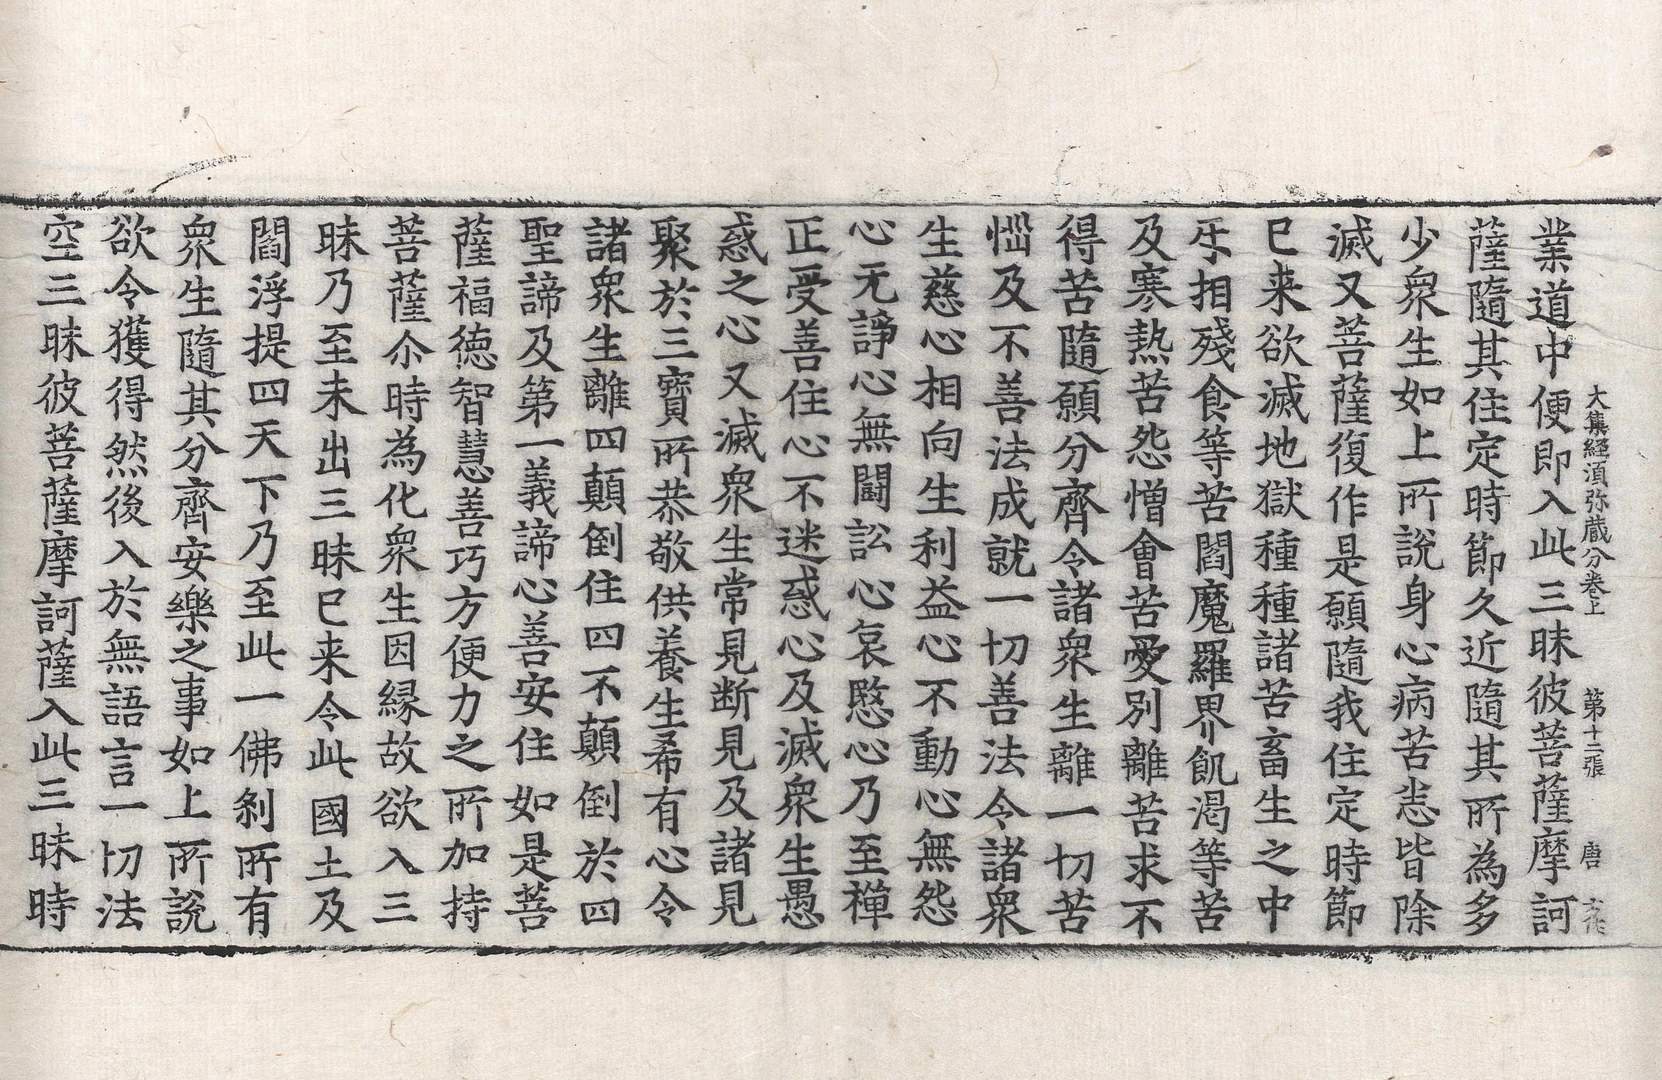 大集経湏弥蔵分巻上 第十二張 唐
業道中便即入此三昧彼菩薩摩訶
薩隨其住定時節久近隨其所為多
少衆生如上所說身心病苦恙皆除
滅又菩薩復作是願隨我住定時節
已来欲滅地獄種種諸苦畜生之中
牙相殘食等苦閻魔羅界飢渴等苦
及寒熱苦怨憎會苦愛別離苦求不
得苦隨願分齊令諸衆生離一切苦
惱及不善法成就一切善法令諸衆
生慈心相向生利益心不動心無怨
心无諍心無鬪訟心哀愍心乃至禪
正受善住心不迷惑心及滅衆生愚
惑之心又滅衆生常見断見及諸見
聚於三寳所恭敬供養生希有心令
諸衆生離四顛倒住四不顛倒於四
聖諦及第一義諦心善安住如是菩
薩福德智慧善巧方便力之所加持
菩薩尒時為化衆生因縁故欲入三
昧乃至未出三昧已来令此國土及
閻浮提四天下乃至此一佛刹所有
衆生隨其分齊安樂之事如上所說
欲令獲得然後入於無語言一切法
空三昧彼菩薩摩訶薩入此三昧時